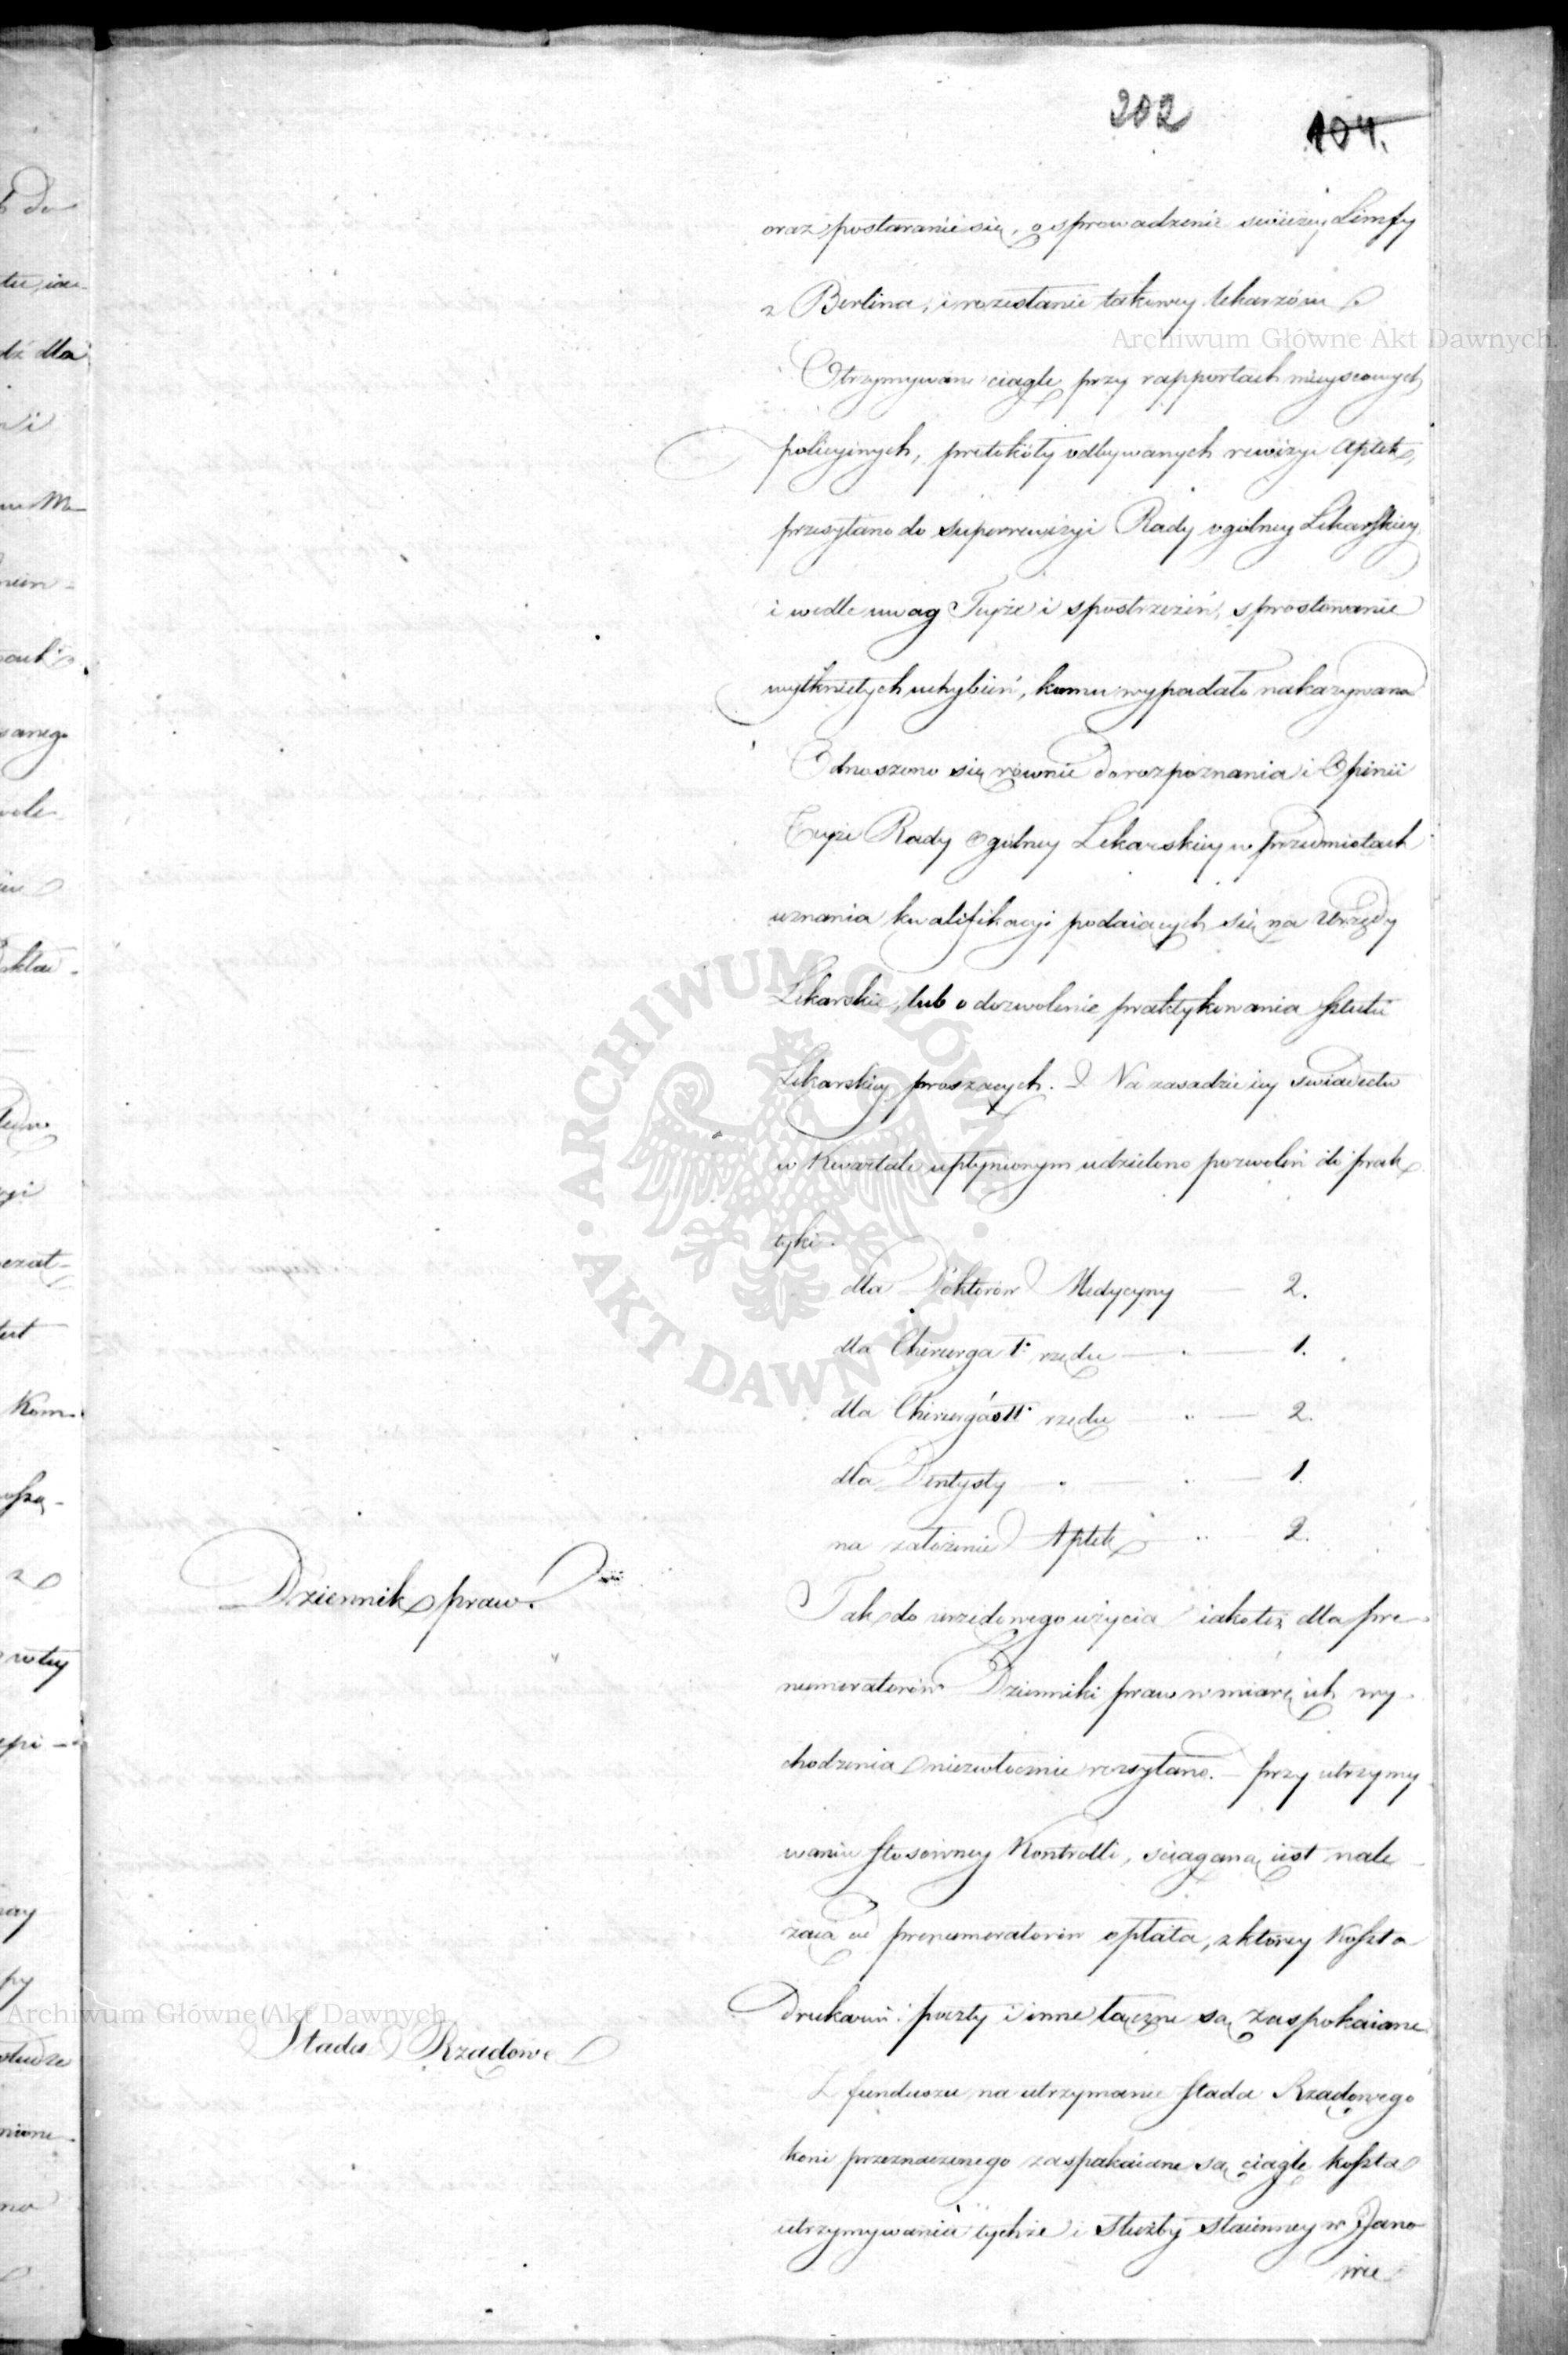 202
104.
oraz postaranie się, o sprowadzenie swiéżey Limfy
z Berlina, i rozesłanie takowey lekarzóm
Otrzymywane ciągle przy rapportach mieyscowych
policyinych, protokóły odbywanych rewizyi Aptek,
przesyłano do superrewizyi Rady ogólney Lekarskiey
i wedle uwag Teyże i spostrzeżeń, sprostowanie
wytkniętych uchybień, komu wypadało nakazywano
Odnoszono się równie do rozpoznania i Opinii
Teyże Rady Ogólney Lekarskiey w przedmiotach
uznania kwalifikacyi podaiących się na Urzędy
Lekarskie, lub o dozwolenie praktykowania sztuki
Lekarskiey proszących. Na zasadzie iey swiadectw
w Kwartale upłynionym udzielono pozwoleń do prak
tyki.
dla Doktorów Medycyny — 2.
dla Chirurga I. rzędu — 1.
dla Chirurgów II. rzędu — 2.
dla Dentysty — 1.
na założenie Aptek — 2.
Dziennik praw.
Tak do urzędowego użycia iakoteż dla pre-
numeratorów Dzienniki praw w miarę ich wy-
chodzenia niezwłocznie rozsyłano. — przy utrzymy
waniu stosowney Kontrolli, sciągana iest nale-
żąca od prenumeratorów opłata, z którey Koszta
Drukarni: poczty i inne łączne są zaspokaiane
Stado Rządowe
Z funduszu na utrzymanie stada Rządowego
koni przeznaczonego zaspakaiane są ciągle koszta
utrzymywania tychże i służby staienney w Jano
wie
Archiwum Główne Akt Dawnych
Archiwum Główne Akt Dawnych
ARCHIWUM GŁÓWNE AKT DAWNYCH